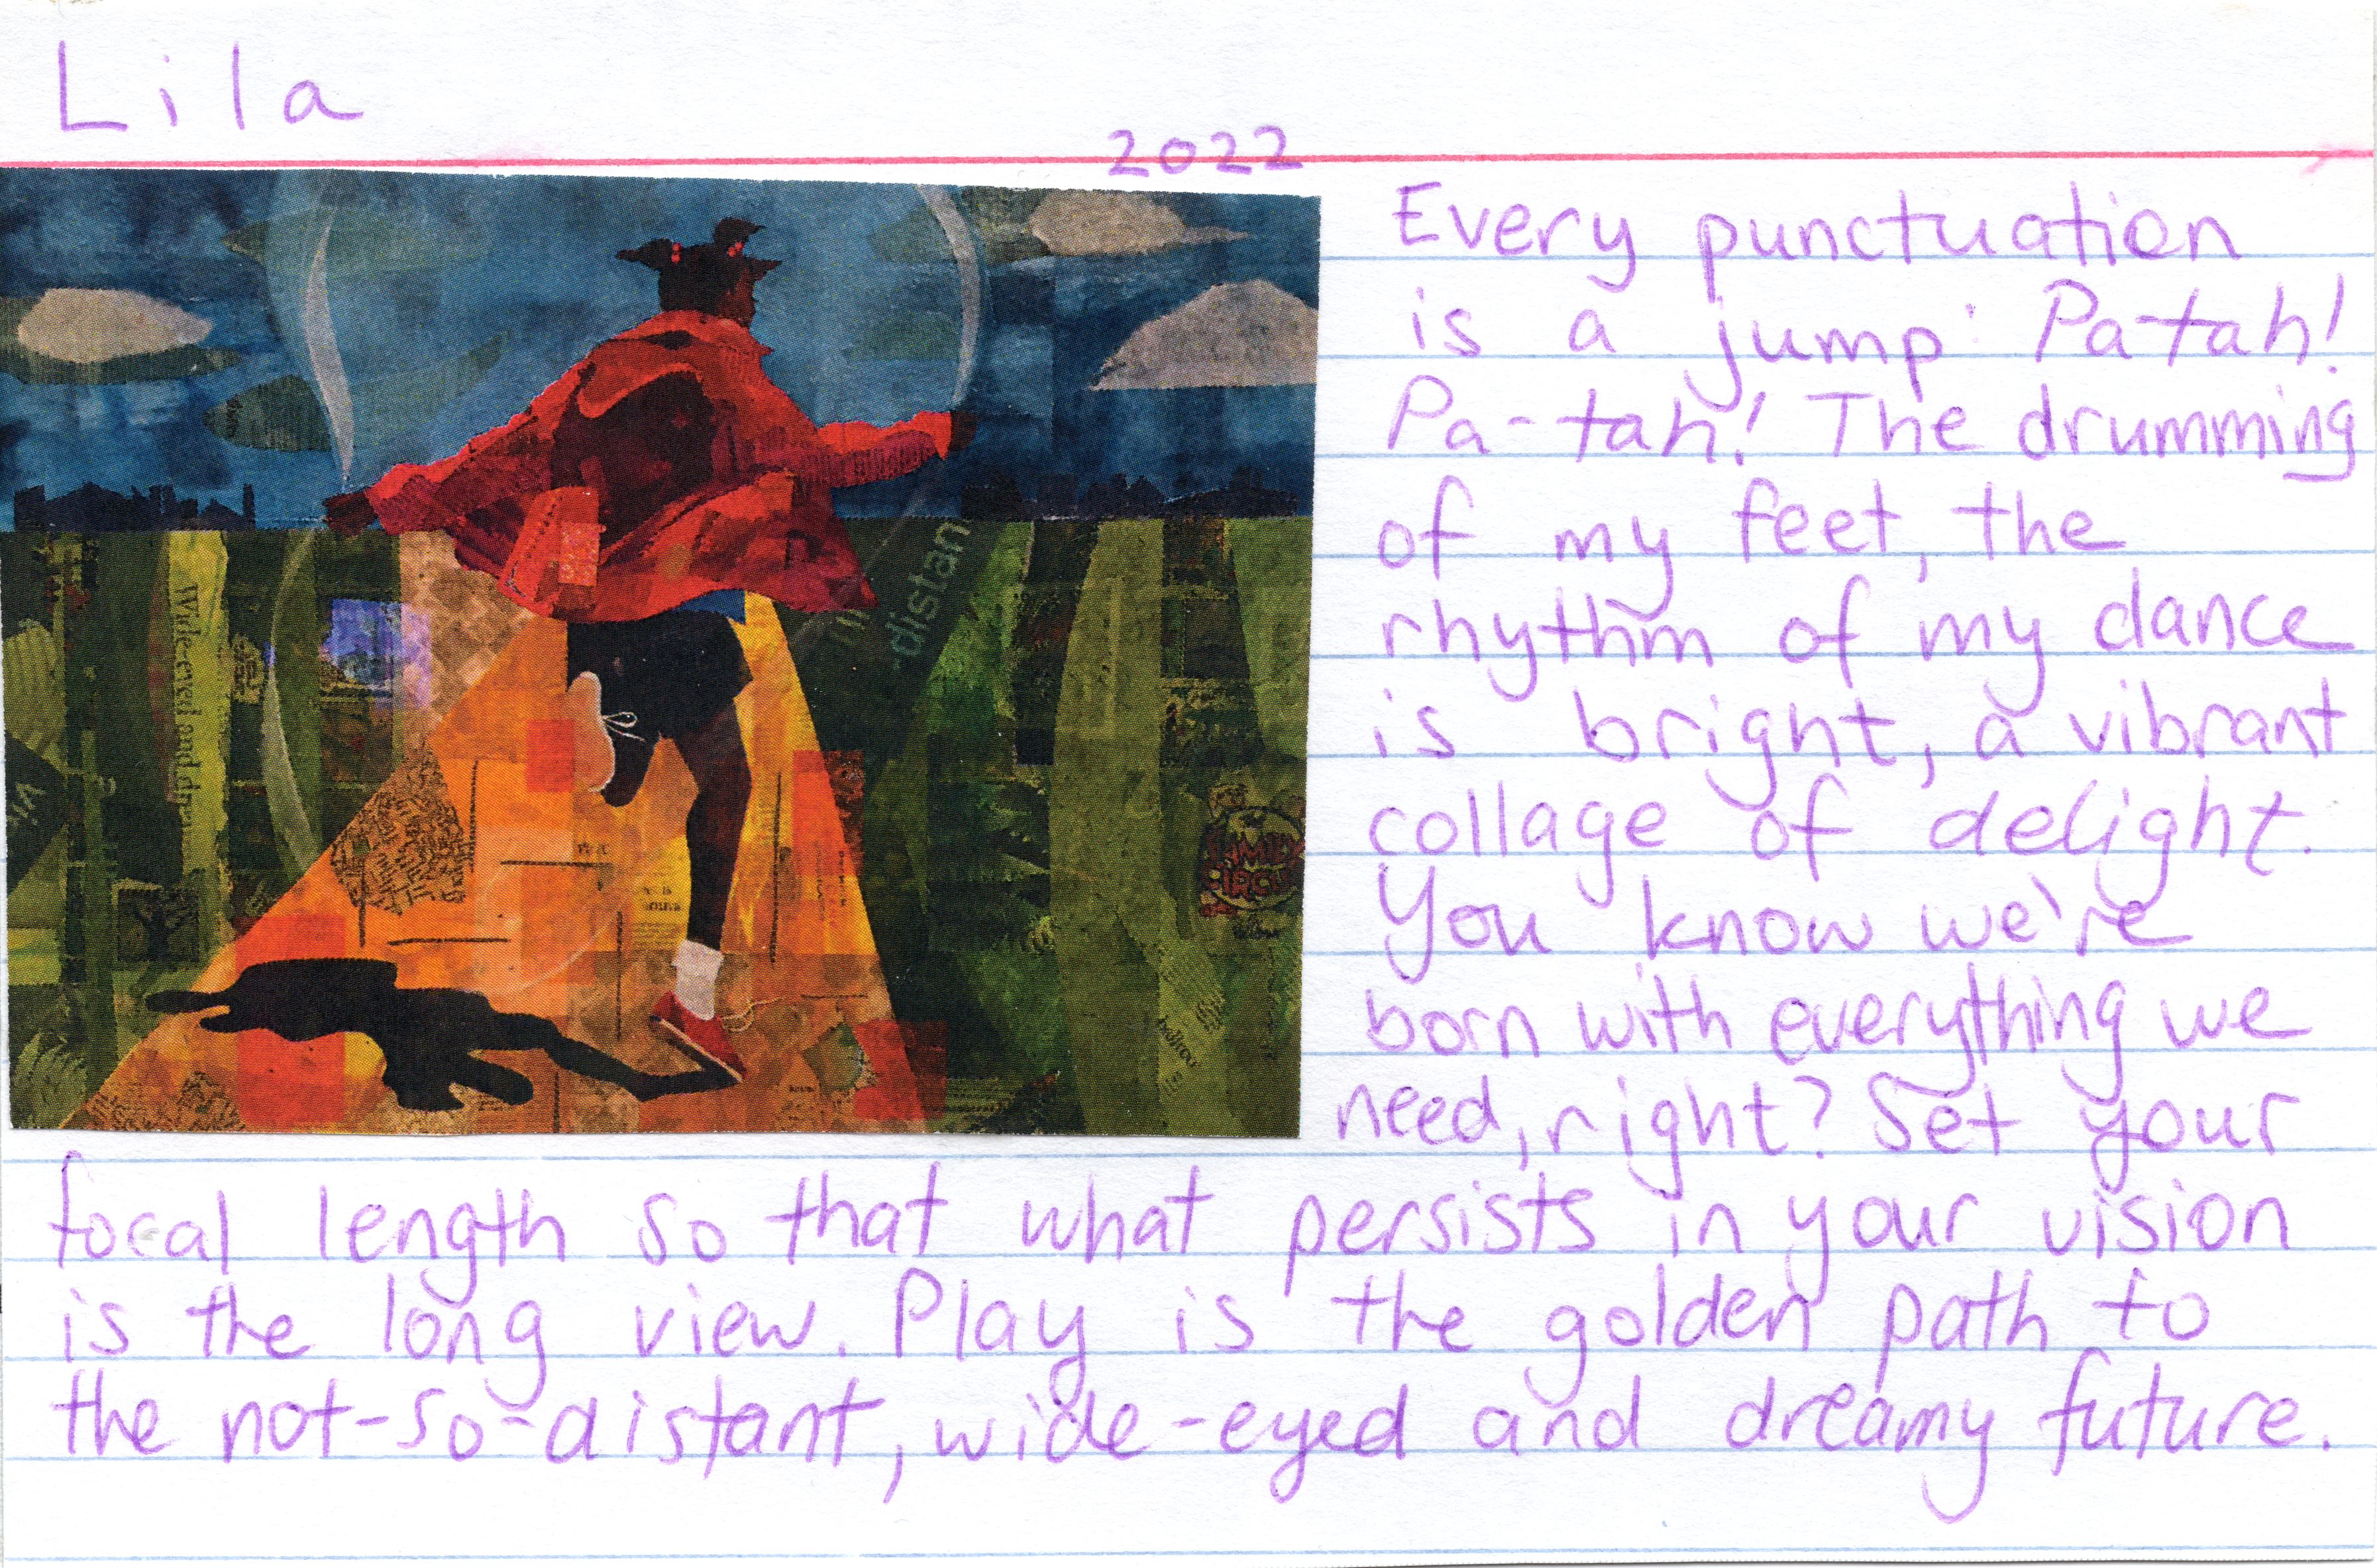 Lila
2022
Every punctuation
is a jump: Pa-tah!
Pa-tah! The drumming
of my feet, the
rhythm of my dance
is bright, a vibrant
collage of delight.
You know we're
born with everything we
need, right? Set your
focal length so that what persists in your vision
is the long view. Play is the golden path to
the not-so-distant, wide-eyed and dreamy future.
distan
Wide-eyed and
FAMILY
CIRCUS